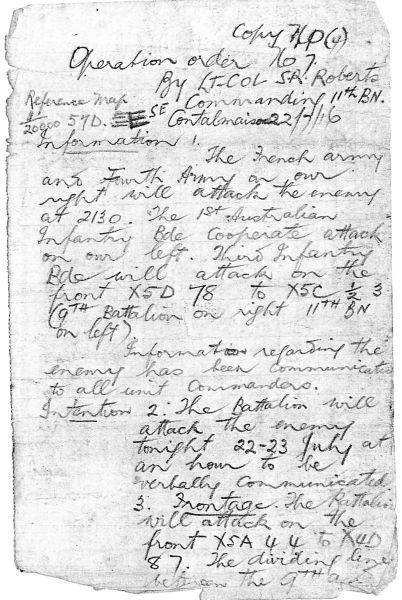 Copy No (4)
Operation order No 7.
By LT-COL SR. Roberts
Reference Map
Commanding 11th BN.
1/20000 57D. SE
Contalmaison 22/7/16
Information 1.
The French army
and Fourth Army on our
right will attack the enemy
at 2130. The 1st Australian
Infantry Bde cooperate attack
on our left. Third Infantry
Bde will attack on the
front X5D 78 to X5C ½ 3
(9TH Battalion on right 11TH BN
on left)
Information regarding the
enemy has been communicated
to all unit Commanders.
Intention 2. The Battalion will
attack the enemy
tonight 22-23 July at
an hour to be
verbally communicated
3. Frontage. The Battalion
will attack on the
front X5A 4 4 to X4D
8 7. The dividing line
between the 9TH and